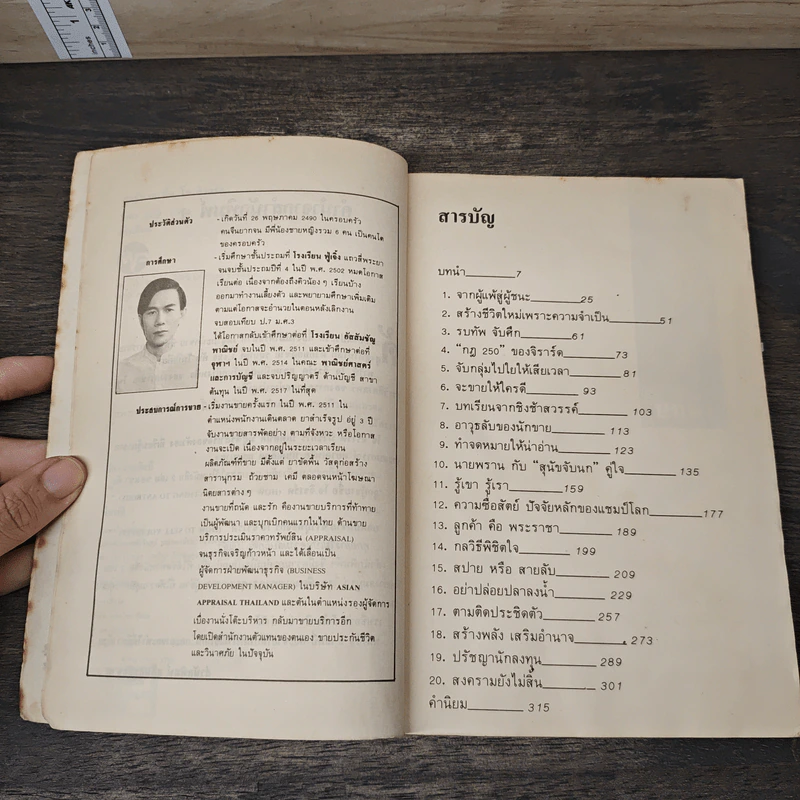 ประวัติส่วนตัว - เกิดวันที่ 26 พฤษภาคม 2490 ในครอบครัว
คนจีนยากจน มีพี่น้องชายหญิงรวม 6 คน เป็นคนโต
ของครอบครัว
การศึกษา - เริ่มศึกษาชั้นประถมที่ โรงเรียน ฟูเจิ้ง แถวสี่พระยา
จนจบชั้นประถมปีที่ 4 ในปี พ.ศ. 2502 หมดโอกาส
เรียนต่อ เนื่องจากต้องถึงคิวน้อง ๆ เรียนบ้าง
ออกมาทำงานเลี้ยงตัว และพยายามศึกษาเพิ่มเติม
ตามแต่โอกาสจะอำนวยในตอนหลังเลิกงาน
จบสอบเทียบ ป.7 ม.ศ.3
ได้โอกาสกลับเข้าศึกษาต่อที่ โรงเรียน อัสสัมชัญ
พาณิชย์ จบในปี พ.ศ. 2511 และเข้าศึกษาต่อที่
จุฬาฯ ในปี พ.ศ. 2514 ในคณะ พาณิชย์ศาสตร์
และการบัญชี และจบปริญญาตรี ด้านบัญชี สาขา
ต้นทุน ในปี พ.ศ. 2517 ในที่สุด
ประสบการณ์การขาย - เริ่มงานขายครั้งแรก ในปี พ.ศ. 2511 ใน
ตำแหน่งพนักงานเดินตลาด ยาสำเร็จรูป อยู่ 3 ปี
จับงานขายสารพัดอย่าง ตามที่จังหวะ หรือโอกาส
งานจะเปิด เนื่องจากอยู่ในระยะเวลาเรียน
ผลิตภัณฑ์ที่ขาย มีตั้งแต่ ยาขัดพื้น วัสดุก่อสร้าง
สารานุกรม ถ้วยชาม เคมี ตลอดจนหน้าโฆษณา
นิตยสารต่าง ๆ
งานขายที่ถนัด และรัก คืองานขายบริการที่ท้าทาย
เป็นผู้พัฒนา และบุกเบิกคนแรกในไทย ด้านขาย
บริการประเมินราคาทรัพย์สิน (APPRAISAL)
จนธุรกิจเจริญก้าวหน้า และได้เลื่อนเป็น
ผู้จัดการฝ่ายพัฒนาธุรกิจ (BUSINESS
DEVELOPMENT MANAGER) ในบริษัท ASIAN
APPRAISAL THAILAND และดันในตำแหน่งรองผู้จัดการ
เบื่องานนั่งโต๊ะบริหาร กลับมาขายบริการอีก
โดยเปิดสำนักงานตัวแทนของตนเอง ขายประกันชีวิต
และวินาศภัย ในปัจจุบัน
สารบัญ
บทนำ 7
1. จากผู้แพ้สู่ผู้ชนะ 25
2. สร้างชีวิตใหม่เพราะความจำเป็น 51
3. รบทัพ จับศึก 61
4. "กฎ 250" ของจิราร์ด 73
5. จับกลุ่มไปใยให้เสียเวลา 81
6. จะขายให้ใครดี 93
7. บทเรียนจากชิงช้าสวรรค์ 103
8. อาวุธลับของนักขาย 113
9. ทำจดหมายให้น่าอ่าน 123
10. นายพราน กับ "สุนัขจับนก" คู่ใจ 135
11. รู้เขา รู้เรา 159
12. ความซื่อสัตย์ ปัจจัยหลักของแชมป์โลก 177
13. ลูกค้า คือ พระราชา 189
14. กลวิธีพิชิตใจ 199
15. สปาย หรือ สายลับ 209
16. อย่าปล่อยปลาลงน้ำ 229
17. ตามติดประชิดตัว 257
18. สร้างพลัง เสริมอำนาจ 273
19. ปรัชญานักลงทุน 289
20. สงครามยังไม่สิ้น 301
คำนิยม 315